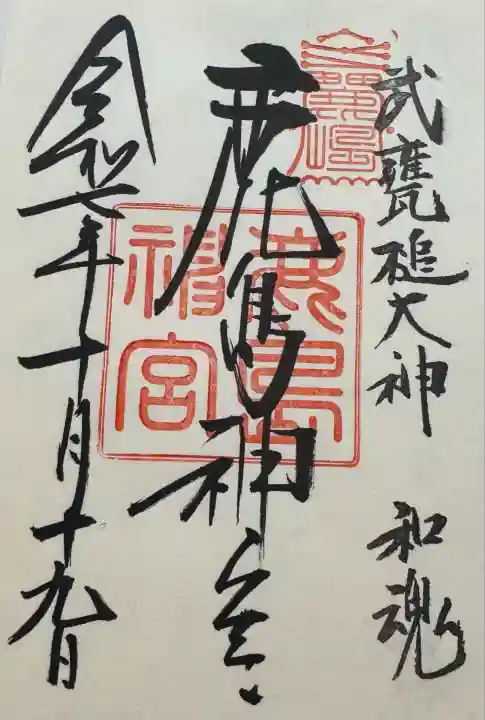 武甕槌大神 和魂
鹿島神宮
鹿島神宮
令和七年十月十九日